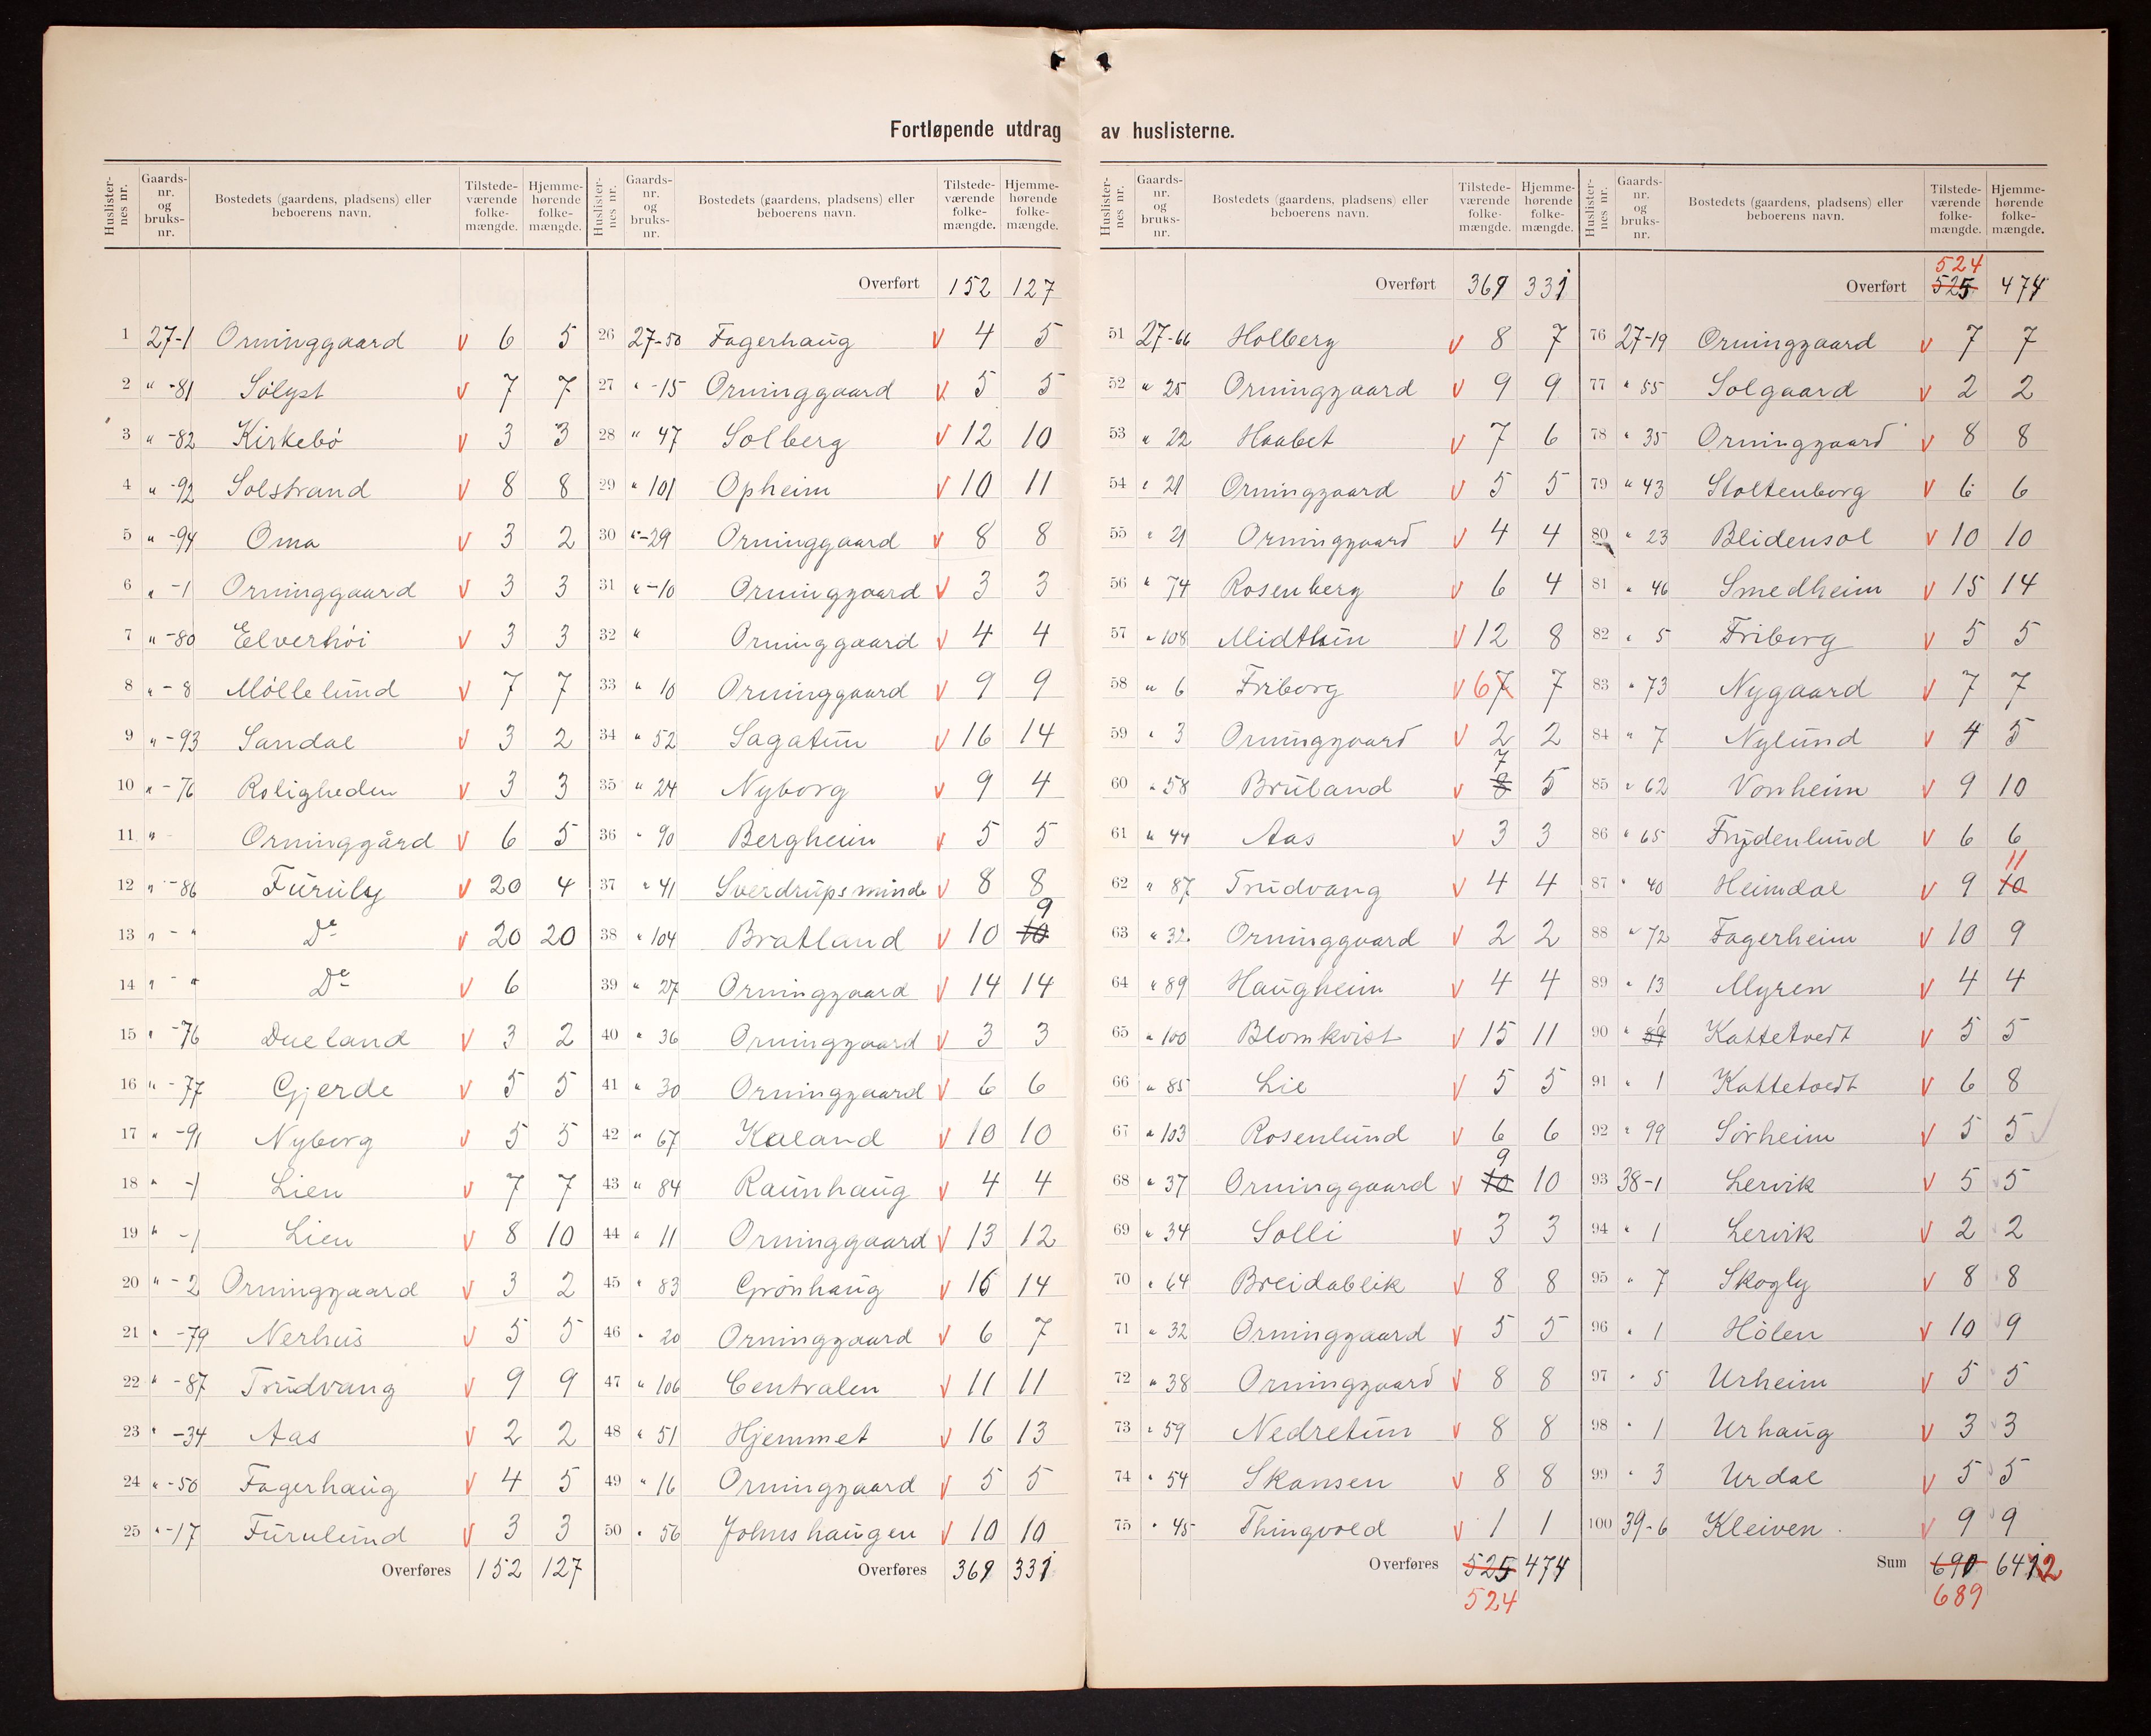 Fortløpende utdrag av huslisterne.
Huslisternes nr. Gaards-nr. og bruks-nr. Bostedets (gaardens, pladsens) eller beboerens navn. Tilstedeværende folkemængde. Hjemmehørende folkemængde.
1 27-1 Orninggaard v 6 5
2 " -81 Sølyst v 7 7
3 " -82 Kirkebø v 3 3
4 " -92 Solstrand v 8 8
5 " -94 Oma v 3 2
6 " -1 Orninggaard v 3 3
7 " -80 Elverhøi v 3 3
8 " -8 Møllelund v 7 7
9 " -93 Sandal v 3 2
10 " -76 Roligheden v 3 3
11 " Orninggård v 6 5
12 " -86 Furuly v 20 4
13 " - " Do v 20 20
14 " - " Do v 6
15 " -76 Dueland v 3 2
16 " -77 Gjerde v 5 5
17 " -91 Nyborg v 5 5
18 " -1 Lien v 7 7
19 " -1 Lien v 8 10
20 " -2 Orninggaard v 3 2
21 " -79 Nerhus v 5 5
22 " -87 Trudvang v 9 9
23 " -34 Aas v 2 2
24 " -50 Fagerhaug v 4 5
25 " -17 Furulund v 3 3
Overføres 152 127
Huslisternes nr. Gaards-nr. og bruks-nr. Bostedets (gaardens, pladsens) eller beboerens navn. Tilstedeværende folkemængde. Hjemmehørende folkemængde.
Overført 152 127
26 27-50 Fagerhaug v 4 5
27 " -15 Orninggaard v 5 5
28 " 47 Solberg v 12 10
29 " 101 Opheim v 10 11
30 " -29 Orninggaard v 8 8
31 " -10 Orninggaard v 3 3
32 " Orninggaard v 4 4
33 " 10 Orninggaard v 9 9
34 " 52 Sagatun v 16 14
35 " 24 Nyborg v 9 4
36 " 90 Bergheim v 5 5
37 " 41 Sverdrupsminde v 8 8
38 " 104 Bratland v 10 10 9
39 " 27 Orninggaard v 14 14
40 " 36 Orninggaard v 3 3
41 " 30 Orninggaard v 6 6
42 " 67 Kaland v 10 10
43 " 84 Raunhaug v 4 4
44 " 11 Orninggaard v 13 12
45 " 83 Grønhaug v 16 14
46 " 20 Orninggaard v 6 7
47 " 106 Centralen v 11 11
48 " 51 Hjemmet v 16 13
49 " 16 Orninggaard v 5 5
50 " 56 Johnshaugen v 10 10
Overføres 369 331
Huslisternes nr. Gaards-nr. og bruks-nr. Bostedets (gaardens, pladsens) eller beboerens navn. Tilstedeværende folkemængde. Hjemmehørende folkemængde.
Overført 369 331
51 27-66 Holberg v 8 7
52 " 25 Orninggaard v 9 9
53 " 22 Haabet v 7 6
54 " 21 Orninggaard v 5 5
55 " 21 Orninggaard v 4 4
56 " 74 Rosenberg v 6 4
57 " 108 Midthun v 12 8
58 " 6 Friborg v 6 7 7
59 " 3 Orninggaard v 2 2
60 " 58 Bruland v 8 7 5
61 " 44 Aas v 3 3
62 " 87 Trudvang v 4 4
63 " 32 Orninggaard v 2 2
64 " 89 Haugheim v 4 4
65 " 100 Blomkvist v 15 11
66 " 85 Lie v 5 5
67 " 103 Rosenlund v 6 6
68 " 37 Orninggaard v 10 9 10
69 " 34 Solli v 3 3
70 " 64 Breidablik v 8 8
71 " 32 Orninggaard v 5 5
72 " 38 Orninggaard v 8 8
73 " 59 Nedretun v 8 8
74 " 54 Skansen v 8 8
75 " 45 Thingvold v 1 1
Overføres 525 474
524
Huslisternes nr. Gaards-nr. og bruks-nr. Bostedets (gaardens, pladsens) eller beboerens navn. Tilstedeværende folkemængde. Hjemmehørende folkemængde.
524
Overført 525 474
76 27-19 Orninggaard v 7 7
77 " 55 Solgaard v 2 2
78 " 35 Orninggaard v 8 8
79 " 43 Stoltenborg v 6 6
80 " 23 Blidensol v 10 10
81 " 46 Smedheim v 15 14
82 " 5 Friborg v 5 5
83 " 73 Nygaard v 7 7
84 " 7 Nylund v 4 5
85 " 62 Vonheim v 9 10
86 " 65 Frydenlund v 6 6
87 " 40 Heimdal v 9 10 11
88 " 72 Fagerheim v 10 9
89 " 13 Myren v 4 4
90 " 89 1 Kattetvedt v 5 5
91 " 1 Kattetvedt v 6 8
92 " 99 Sørheim v 5 5
93 38-1 Lervik v 5 5
94 " 1 Lervik v 2 2
95 " 7 Skogly v 8 8
96 " 1 Hølen v 10 9
97 " 5 Urheim v 5 5
98 " 1 Urhaug v 3 3
99 " 3 Urdal v 5 5
100 39-6 Kleiven v 9 9
Sum 690 6412
689